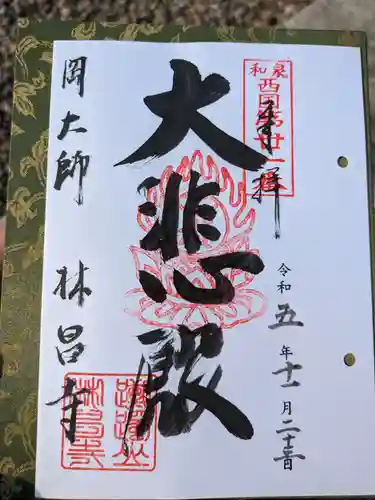 和泉
西国第廿一番
奉拝
令和五年十一月二十
大悲殿
岡大師 林昌寺
躑躅山
林昌寺